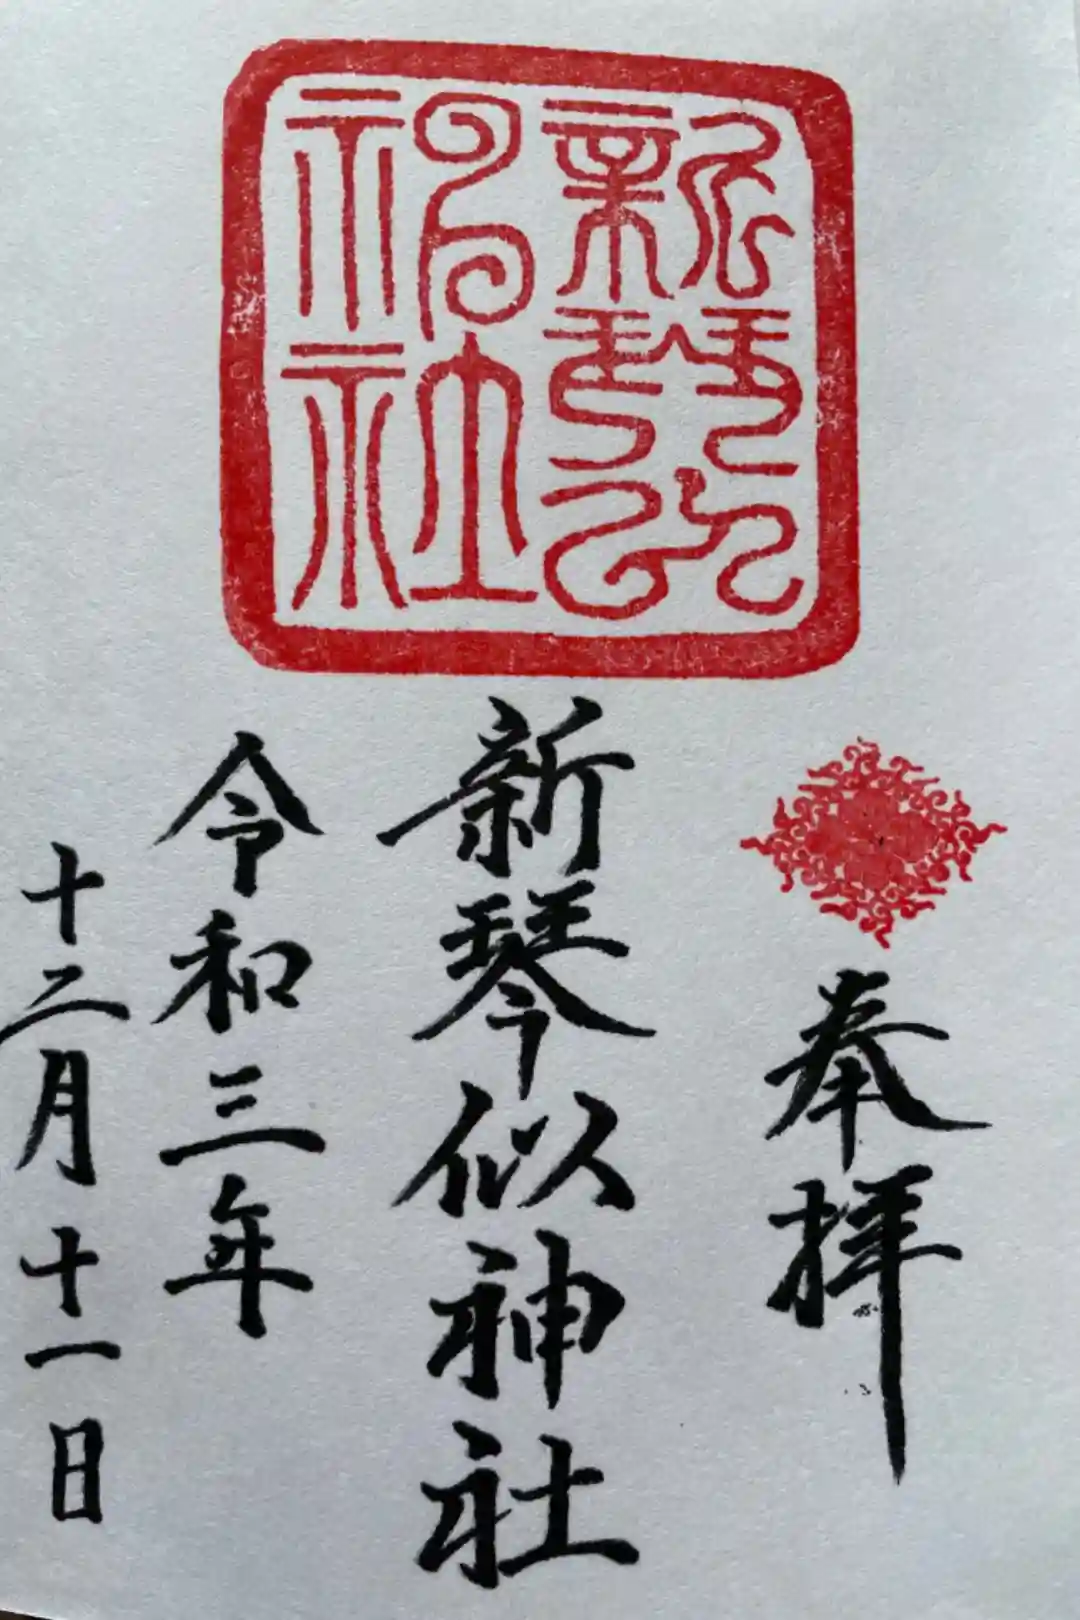 新琴似神社
奉拝
新琴似神社
令和三年
十二月十一日